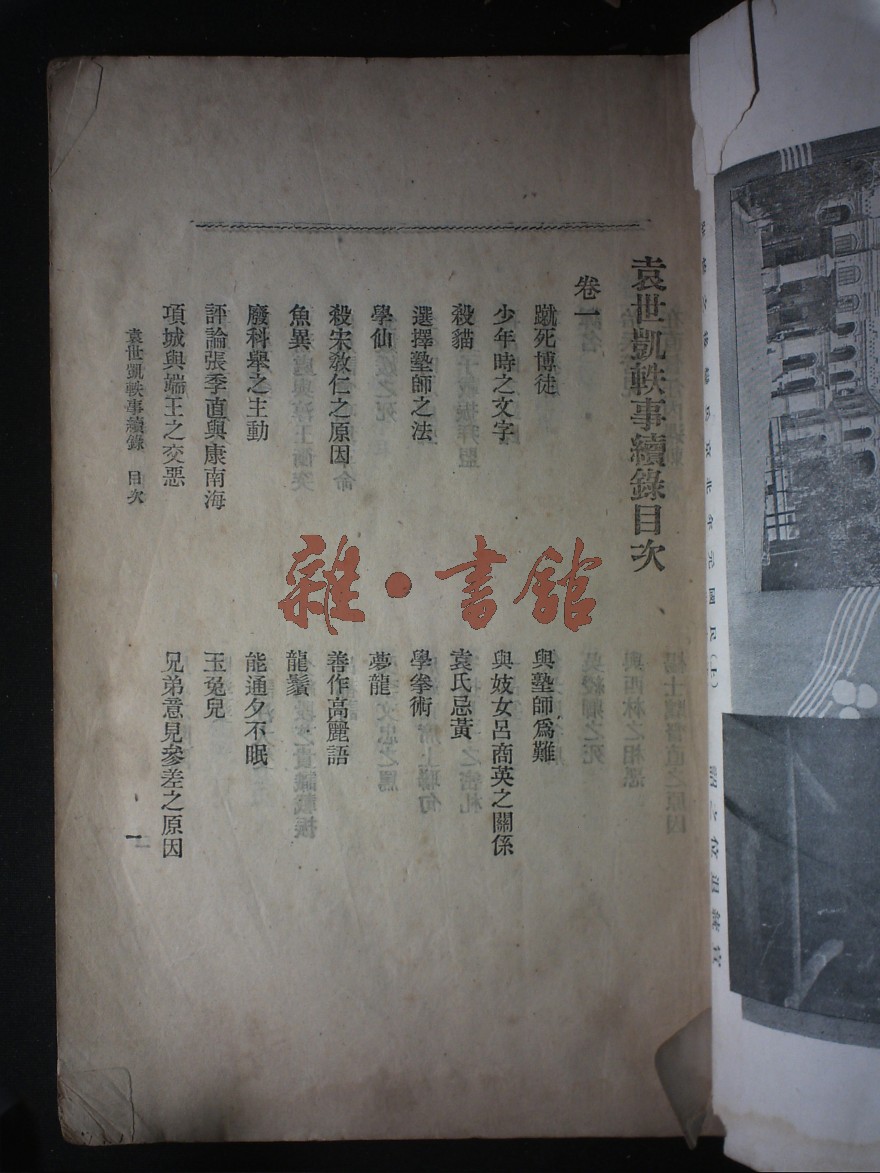 袁世凱軼事續錄目次
卷一
蹴死博徒
與塾師爲難
少年時之文字
與妓女呂商英之關係
殺貓
袁氏忌黃
選擇塾師之法
學拳術
學仙
夢龍
殺宋教仁之原因
善作高麗語
魚異
龍鬚
廢科舉之主動
能通夕不眠
評論張季直與康南海
玉兔兒
項城與端王之交惡
兄弟意見參差之原因
袁世凱軼事續錄 目次
一
雜·書館